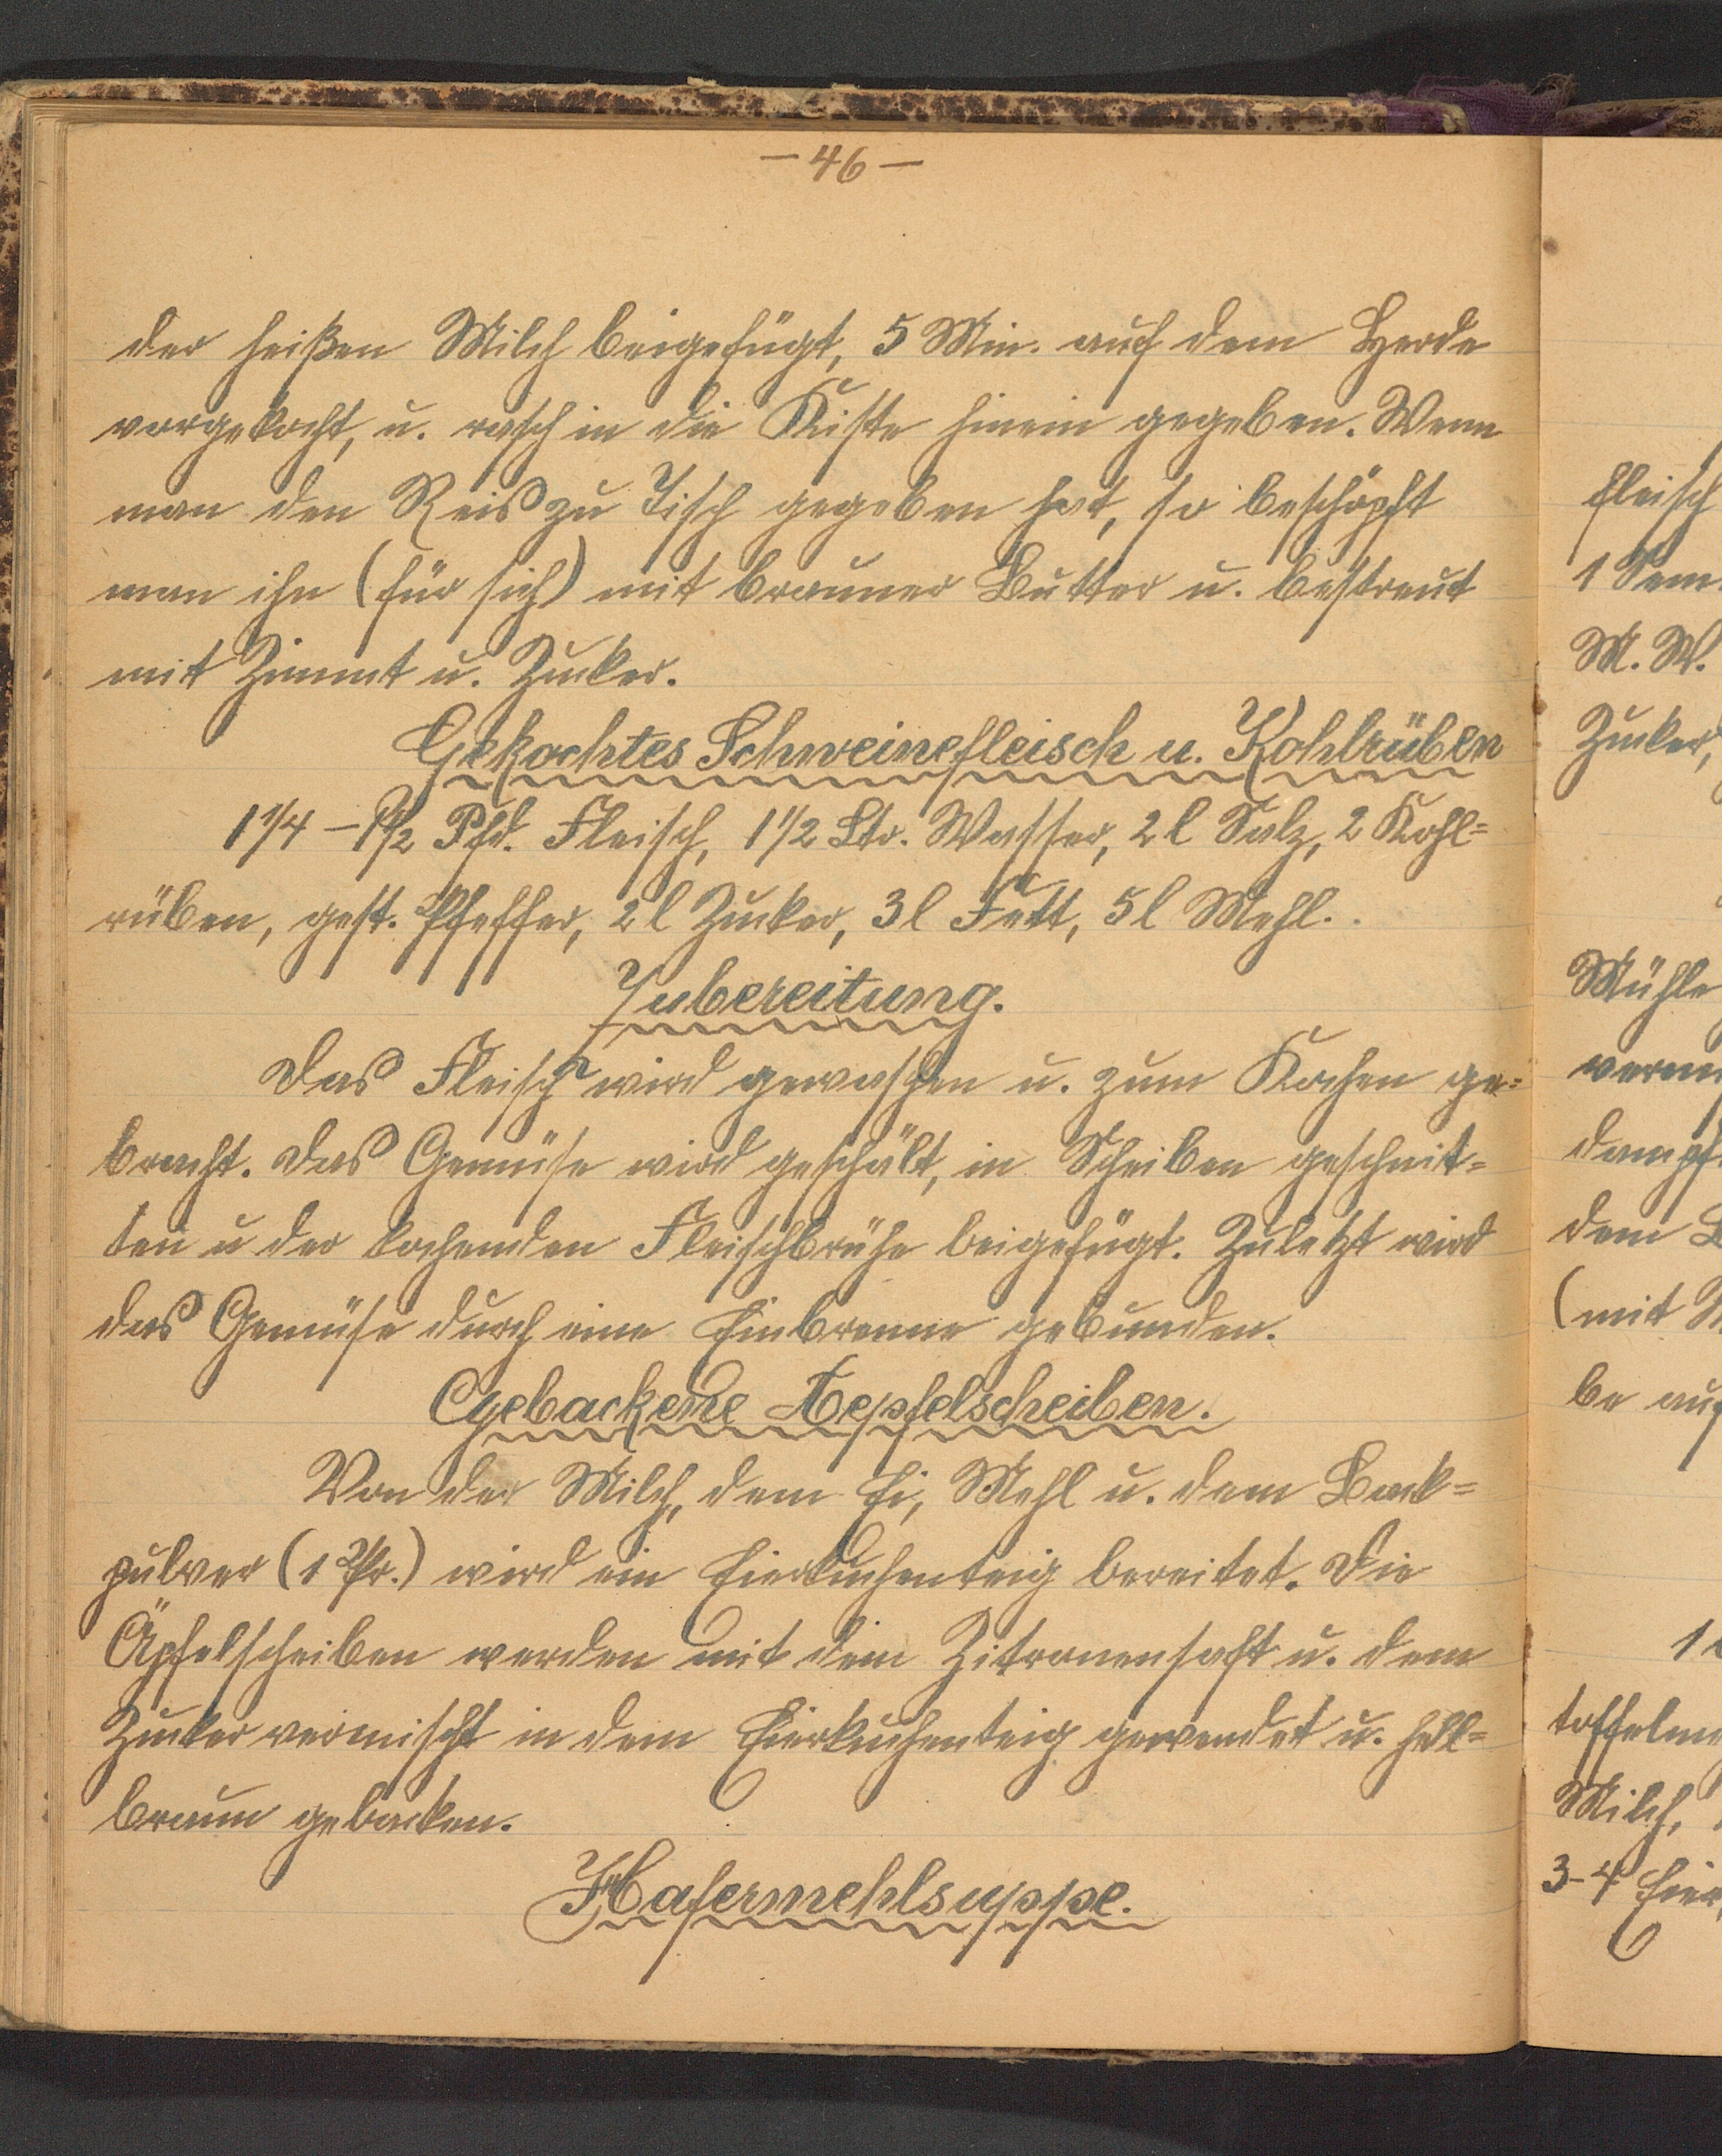 — 46 —
der heißen Milch beigefügt, 5 Min. auf dem Herde
vorgekocht, u. rasch in die Kiste hinein gegeben. Wenn
man den Reis zu Tisch gegeben hat, so beschöpft
man ihn (für sich) mit brauner Butter u. bestreut
mit Zimmt u. Zucker.
Gekochtes Schweinefleisch u. Kohlrüben
1 1/4 – 1 1/2 Pfd. Fleisch, 1 1/2 Ltr. Wasser, 2 l Salz, 2 Kohl=
rüben, gest. Pfeffer, 2 l Zucker, 3 l Fett, 5 l Mehl.
Zubereitung.
Das Fleisch wird gewaschen u. zum Kochen ge=
bracht. Das Gemüse wird geschält, in Scheiben geschnit=
ten u der kochenden Fleischbrühe beigefügt. Zuletzt wird
das Gemüse durch eine Einbrenne gebunden.
Gebackene Aepfelscheiben.
Von der Milch, dem Ei, Mehl u. dem Back=
pulver (1 Pr.) wird ein Eierkuchenteig bereitet. Die
Äpfelscheiben werden mit dem Zitronensaft u. dem
Zucker vermischt in dem Eierkuchenteig gewendet u. hell=
braun gebacken.
Hafermehlsuppe.
fleisch
1 Sem.
M. W.
Zucker,
Mühle
dampf
dem
(mit
be auf
1
toffelm
Milch,
3-4 Eier,